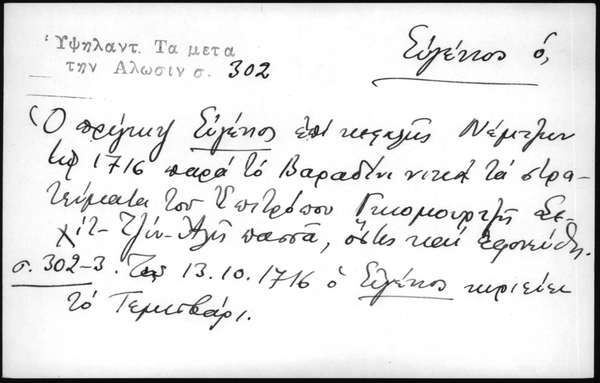 Ὑψηλαντ. Τα μετα
την Αλωσιν σ. 302
Εὐγένιος ὁ,
Ὁ πρίγκηψ Εὐγένιος ἐπί κεφαλῆς Νέμτζων
τῷ 1716 παρά τό Βαραδίνι νικᾷ τά στρα-
τεύματα τοῦ Ἐπιτρόπου Γκιομουρτζῆ Σε-
χίτ-Τζίν-Ἀλῆ πασσᾶ, ὅστις καί ἐφονεύθη.
σ. 302-3. Τῇ 13.10.1716 ὁ Εὐγένιος κυριεύει
τό Τεμισβάρι.